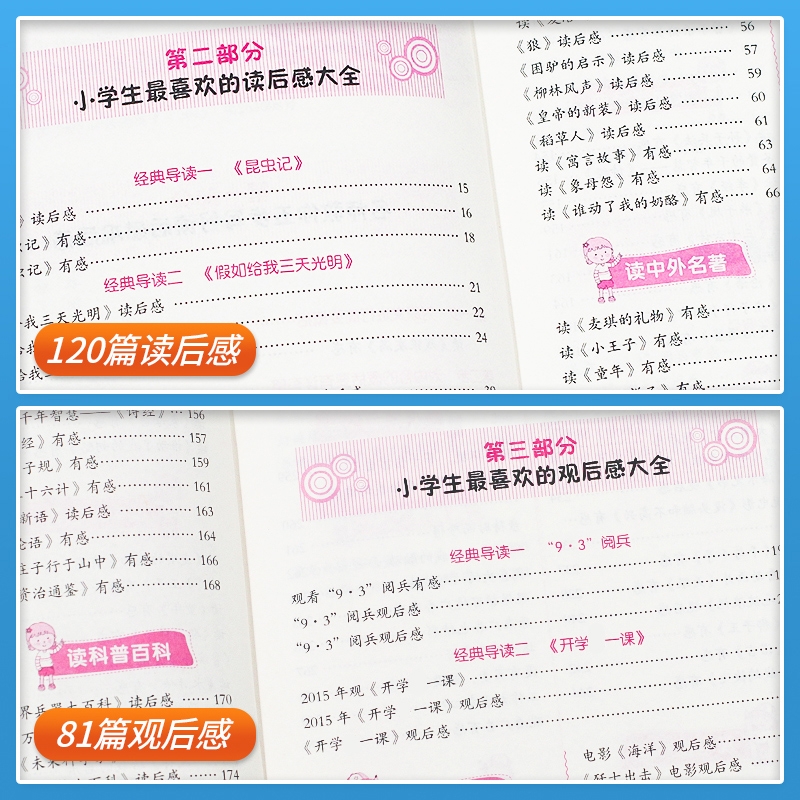 第二部分
小学生最喜欢的读后感大全
经典导读一 《昆虫记》
》读后感 15
记》有感 16
记》有感 18
经典导读二 《假如给我三天光明》
我三天光明》读后感 21
22
24
56
《狼》读后感 57
《困驴的启示》读后感 59
《柳林风声》读后感 60
《皇帝的新装》读后感 61
《稻草人》读后感 63
读《寓言故事》有感 64
读《象母怨》有感 66
读《谁动了我的奶酪》有感
读中外名著
读《麦琪的礼物》有感
读《小王子》有感
读《童年》有感
120篇读后感
千年智慧——《诗经》 156
经》有感 157
子规》有感 159
十六计》有感 161
新语》读后感 163
论语》有感 164
庄子行于山中》有感 166
资治通鉴》有感 168
读科普百科
界兵器大百科》读后感 170
174
第三部分
小学生最喜欢的观后感大全
经典导读一 “9·3”阅兵
观看“9·3”阅兵有感
“9·3”阅兵观后感
“9·3”阅兵观后感
经典导读二 《开学 一课》
2015年观《开学 一课》
2015年《开学 一课》观后感
《开学 一课》观后感
电影《海洋》观后感
《歼十出击》电影观后感
81篇观后感